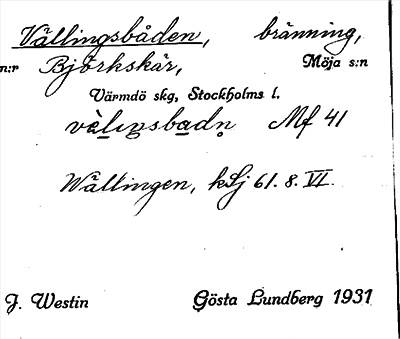 Vällingsbåden, bränning,
n:r Björkskär, Möja s:n
Värmdö skg, Stockholms l.
vàlıŋsbadn Mf 41
Wällingen, kSj 61. 8. VI.
J. Westin Gösta Lundberg 1931